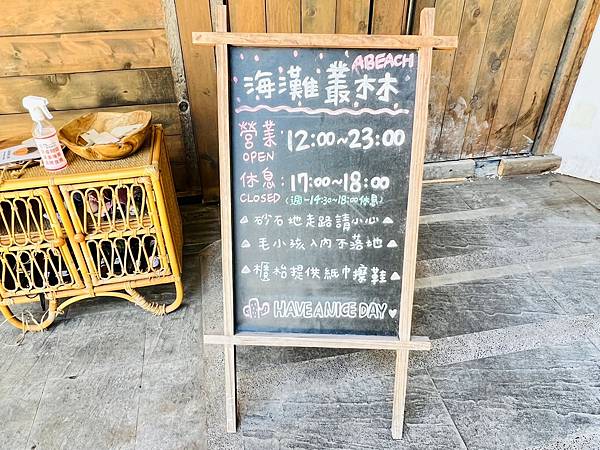 ABEACH
海灘叢林
營業:12:00~23:00
OPEN
休息:17:00~18:00
CLOSED (週一14:30~18:00休息)
砂石地走路請小心
毛小孩入內不落地
櫃枱提供紙巾擦鞋
HAVE A NICE DAY